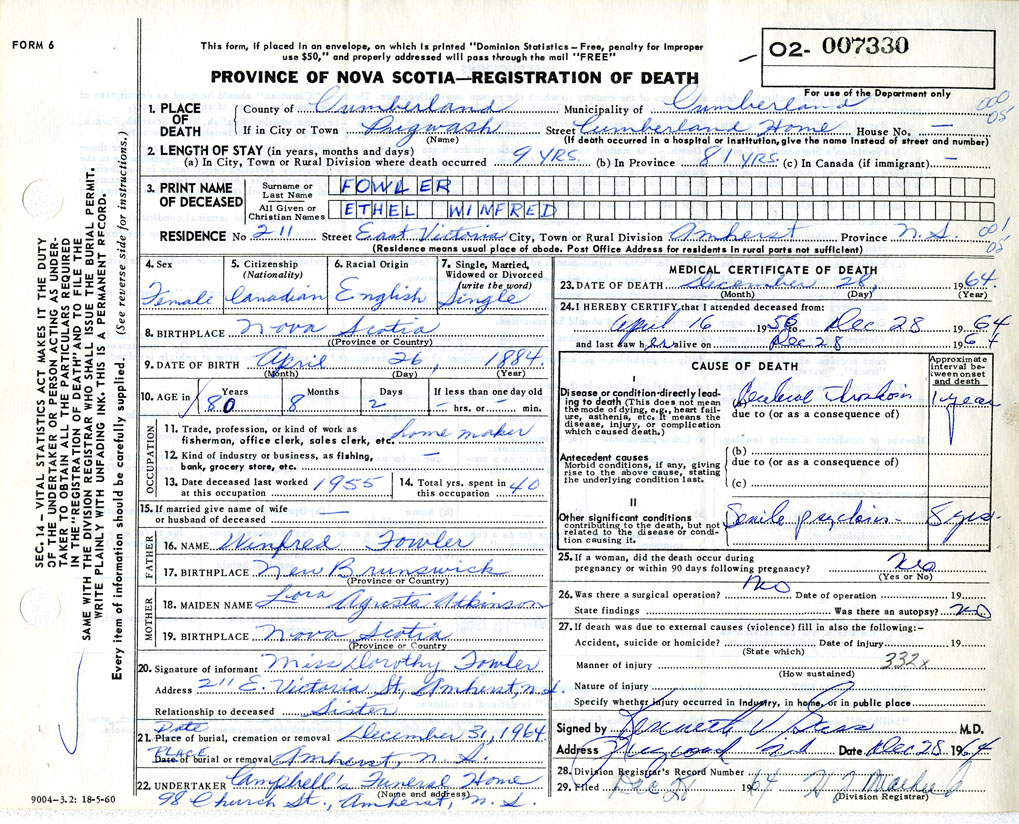 FORM 6
This form, if placed in an envelope, on which is printed "Dominion Statistics – Free, penalty for improper
use $50," and properly addressed will pass through the mail "FREE"
O2- 007330
PROVINCE OF NOVA SCOTIA—REGISTRATION OF DEATH
For use of the Department only
1. PLACE OF DEATH County of Cumberland Municipality of Cumberland 000 05
If in City or Town Pugwash Street Cumberland Home House No. —
(Name) (If death occurred in a hospital or institution, give the name instead of street and number)
2. LENGTH OF STAY (in years, months and days)
(a) In City, Town or Rural Division where death occurred 9 YRS. (b) In Province 81 YRS. (c) In Canada (if immigrant) —
3. PRINT NAME OF DECEASED Surname or Last Name FOWLER
All Given or Christian Names ETHEL WINFRED
RESIDENCE No 211 Street East Victoria City, Town or Rural Division Amherst Province N.S. 001 05
(Residence means usual place of abode. Post Office Address for residents in rural parts not sufficient)
4. Sex Female
5. Citizenship (Nationality) Canadian
6. Racial Origin English
7. Single, Married, Widowed or Divorced (write the word) Single
8. BIRTHPLACE Nova Scotia
(Province or Country)
9. DATE OF BIRTH April 26, 1884.
(Month) (Day) (Year)
10. AGE in Years Months Days If less than one day old
80 8 2 — hrs. or — min.
OCCUPATION
11. Trade, profession, or kind of work as
fisherman, office clerk, sales clerk, etc. home maker
12. Kind of industry or business, as fishing,
bank, grocery store, etc. —
13. Date deceased last worked at this occupation 1955
14. Total yrs. spent in this occupation 40
15. If married give name of wife
or husband of deceased —
FATHER
16. NAME Winfred Fowler
17. BIRTHPLACE New Brunswick
(Province or Country)
MOTHER
18. MAIDEN NAME Lora Agusta Atkinson
19. BIRTHPLACE Nova Scotia
(Province or Country)
20. Signature of informant Miss Dorothy Fowler
Address 211 E. Victoria St., Amherst, N.S.
Relationship to deceased Sister
Date
21. Place of burial, cremation or removal December 31, 1964.
PLACE
Date of burial or removal Amherst, N.S.
22. UNDERTAKER Campbell's Funeral Home
(Name and address)
98 Church St., Amherst, N.S.
MEDICAL CERTIFICATE OF DEATH
23. DATE OF DEATH December 28, 1964.
(Month) (Day) (Year)
24. I HEREBY CERTIFY that I attended deceased from:
April 16 1956 to Dec 28 1964
and last saw her alive on Dec 28 1964
CAUSE OF DEATH
Approximate interval between onset and death
I
Disease or condition directly leading to death (This does not mean
the mode of dying, e.g., heart failure, asthenia, etc. It means the
disease, injury, or complication which caused death.)
(a) Cerebral 1 year
due to (or as a consequence of)
Antecedent causes
Morbid conditions, if any, giving rise to the above cause, stating the underlying condition last.
(b)
due to (or as a consequence of)
(c)
II
Other significant conditions
contributing to the death, but not related to the disease or condition causing it.
Senile psychosis 8 yrs.
25. If a woman, did the death occur during
pregnancy or within 90 days following pregnancy? No
(Yes or No)
26. Was there a surgical operation? No Date of operation 19
State findings Was there an autopsy? No
27. If death was due to external causes (violence) fill in also the following:–
Accident, suicide or homicide? Date of injury 19
(State which)
Manner of injury 332x
(How sustained)
Nature of injury
Specify whether injury occurred in industry, in home, or in public place
Signed by Kenneth V M.D.
Address Date Dec 28 1964
28. Division Registrar's Record Number
29. Filed Dec 28 1964
(Division Registrar)
SEC. 14 – VITAL STATISTICS ACT MAKES IT THE DUTY
OF THE UNDERTAKER OR PERSON ACTING AS UNDER-
TAKER TO OBTAIN ALL THE PARTICULARS REQUIRED
IN THE "REGISTRATION OF DEATH" AND TO FILE THE
SAME WITH THE DIVISION REGISTRAR WHO SHALL ISSUE THE BURIAL PERMIT.
WRITE PLAINLY WITH UNFADING INK. THIS IS A PERMANENT RECORD.
Every item of information should be carefully supplied. (See reverse side for instructions.)
9004–3.2: 18-5-60